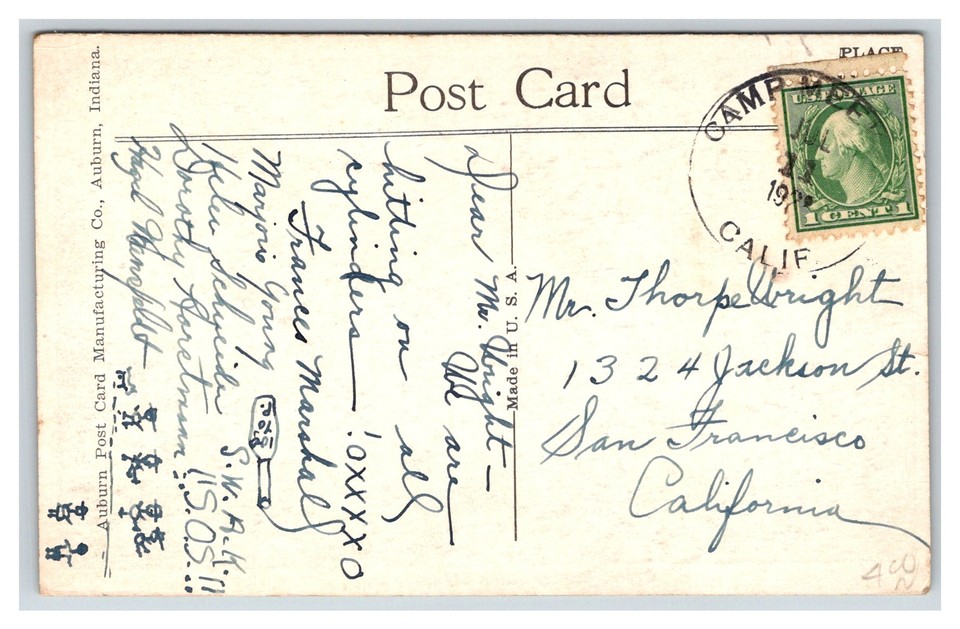 Post Card
PLACE
U.S. POSTAGE
1 CENT 1
CAMP MEE
JUL
CALIF.
Auburn Post Card Manufacturing Co., Auburn, Indiana.
Made in U. S. A.
Dear Mr. Wright—
We are
hitting on all
cylinders— !OXXXXO
Frances Marshall
Marjorie Young
Helen Schneider S.W.A.K.
Dorothy !!S.O.S!!
Hazel
Mr. Thorpe Wright
1324 Jackson St.
San Francisco
California